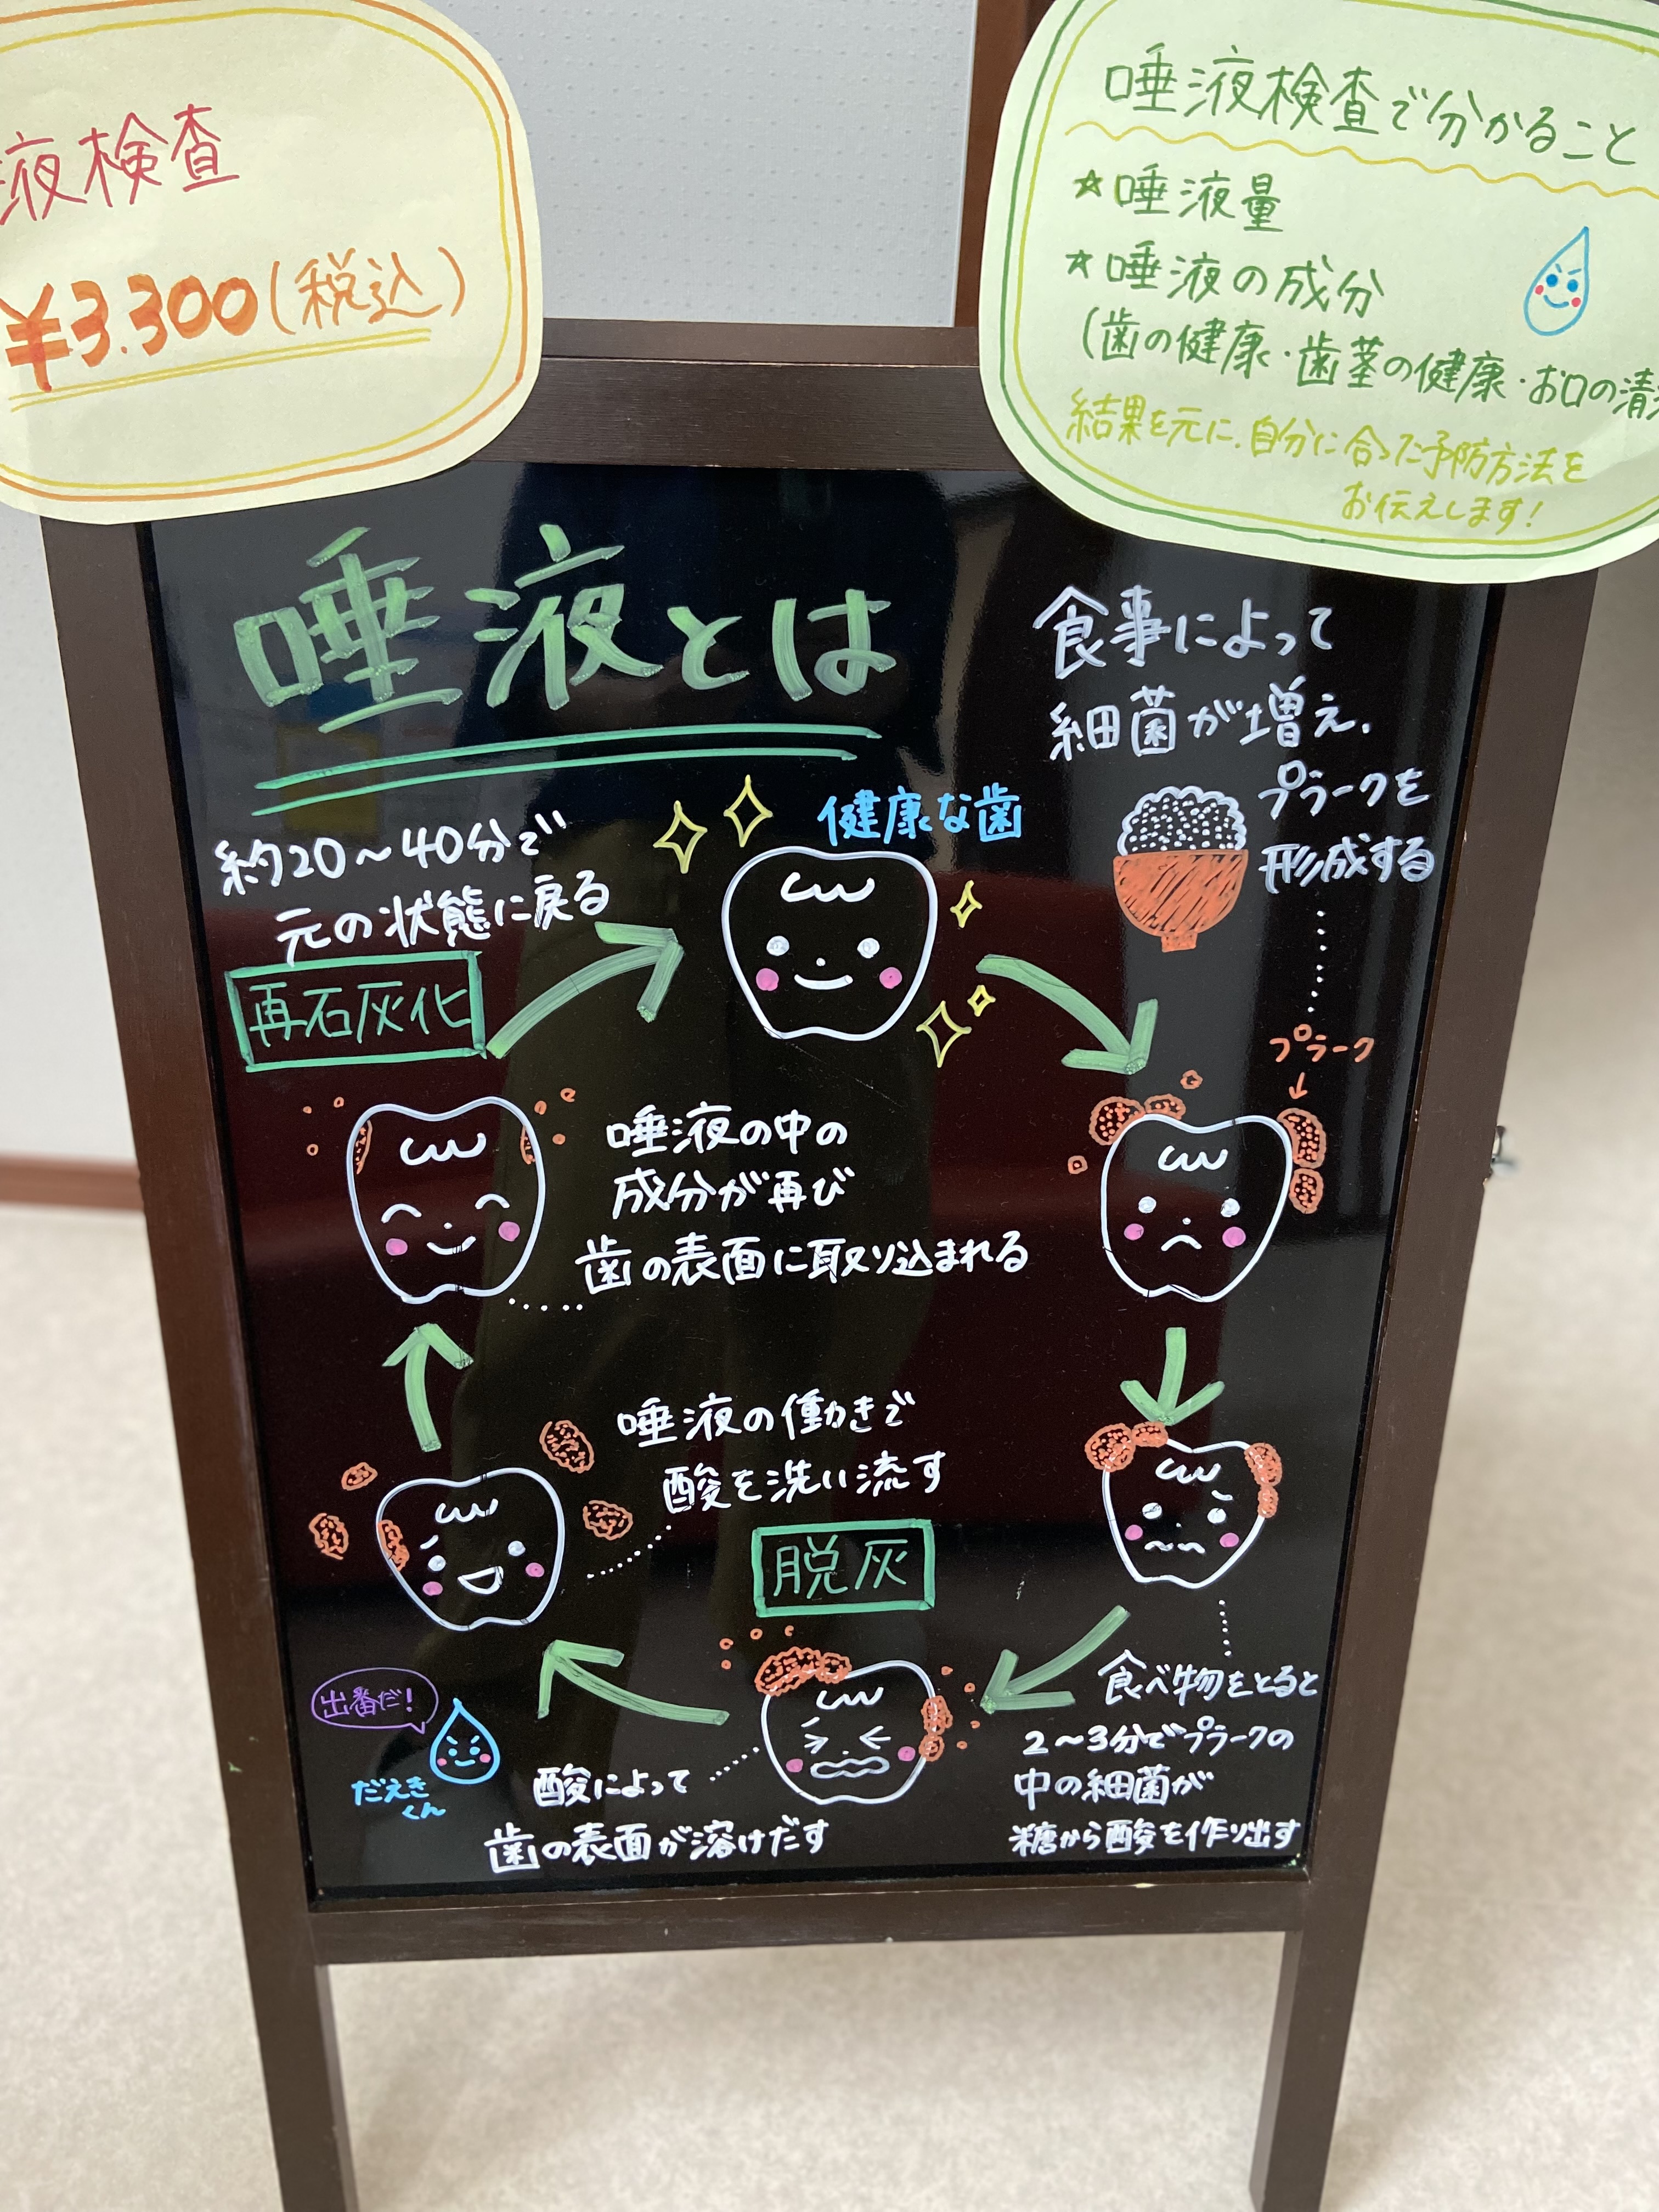 液検査
¥3.300(税込)
唾液検査で分かること
☆唾液量
☆唾液の成分
(歯の健康・歯茎の健康・お口の清
結果を元に、自分に合った予防方法を
お伝えします!
唾液とは
食事によって
細菌が増え、
プラークを
形成する
健康な歯
約20〜40分で
元の状態に戻る
再石灰化
プラーク
↓
唾液の中の
成分が再び
歯の表面に取り込まれる
唾液の働きで
酸を洗い流す
脱灰
食べ物をとると
2〜3分でプラークの
中の細菌が
糖から酸を作り出す
酸によって
歯の表面が溶けだす
出番だ!
だえき
くん